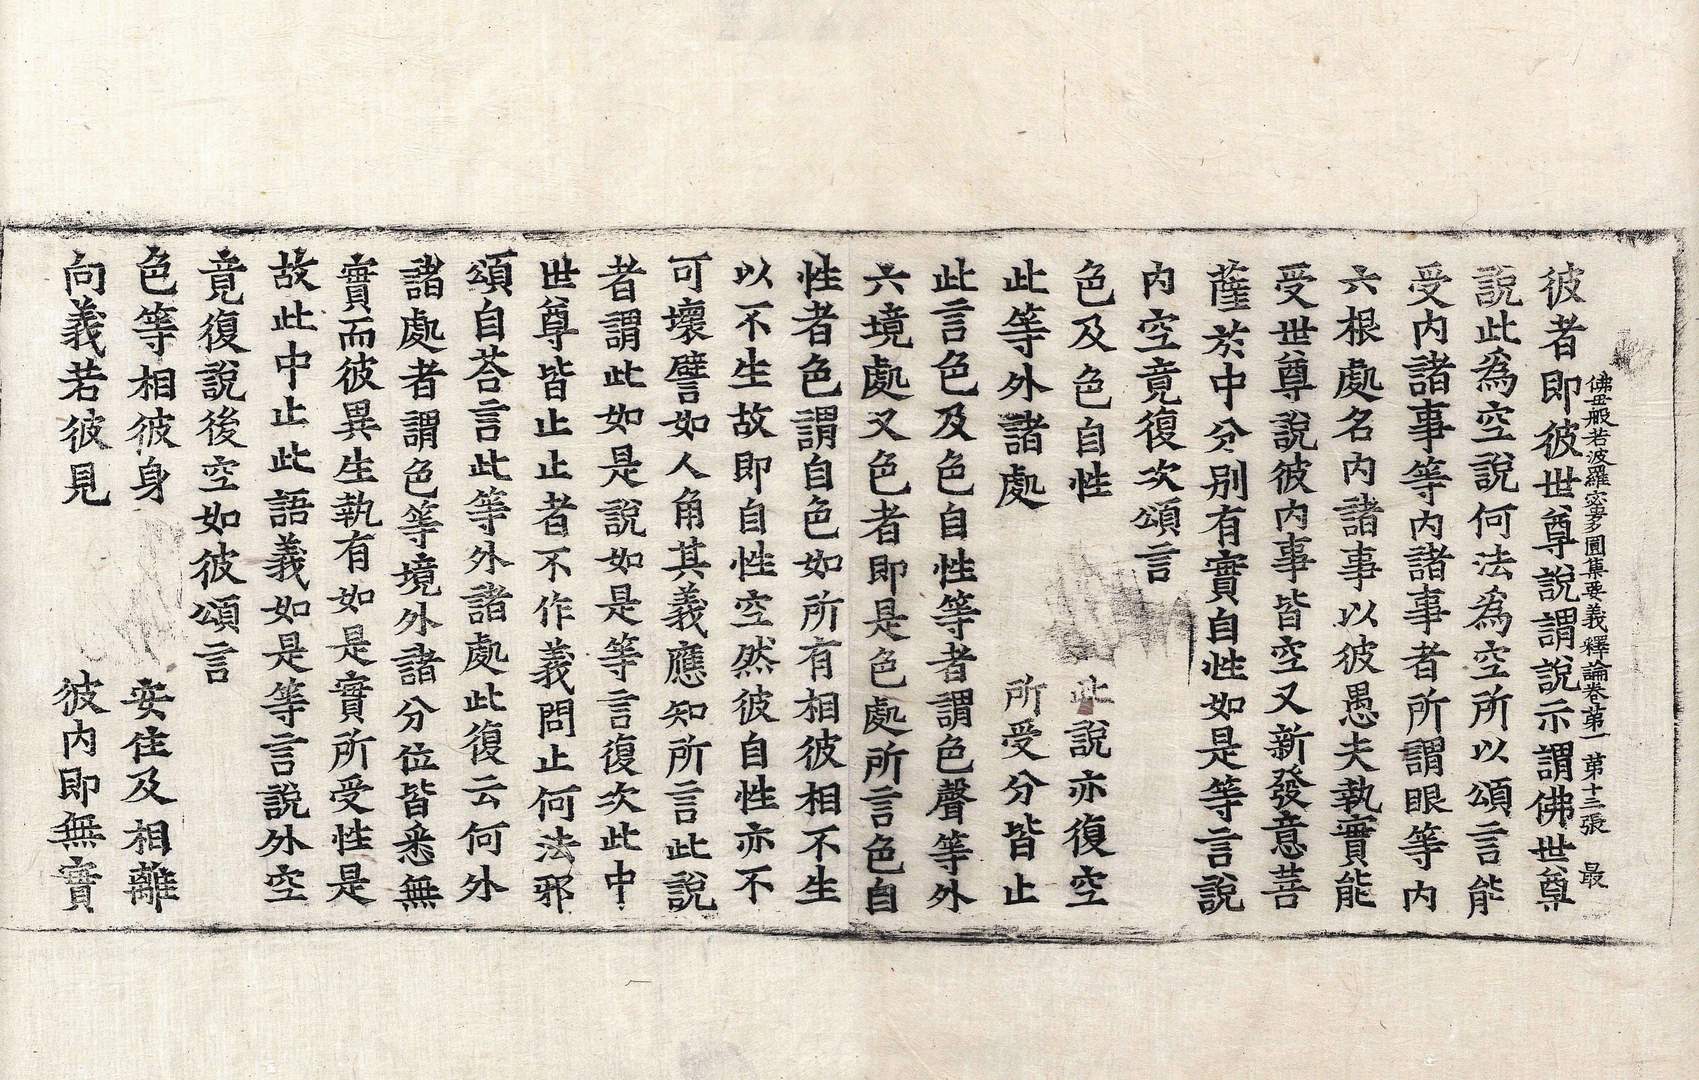 佛母般若波羅蜜多圓集要義釋論卷第一 第十三張 最
彼者即彼世尊說謂說示謂佛世尊
說此為空說何法為空所以頌言能
受内諸事等内諸事者所謂眼等内
六根處名内諸事以彼愚夫執實能
受世尊說彼内事皆空又新發意菩
薩於中分別有實自性如是等言說
内空竟復次頌言
色及色自性 此說亦復空
此等外諸處 所受分皆止
此言色及色自性等者謂色聲等外
六境處又色者即是色處所言色自
性者色謂自色如所有相彼相不生
以不生故即自性空然彼自性亦不
可壞譬如人角其義應知所言此說
者謂此如是說如是等言復次此中
世尊皆止止者不作義問止何法邪
頌自荅言此等外諸處此復云何外
諸處者謂色等境外諸分位皆悉無
實而彼異生執有如是實所受性是
故此中止此語義如是等言說外空
竟復說後空如彼頌言
色等相彼身 安住及相離
向義若彼見 彼内即無實